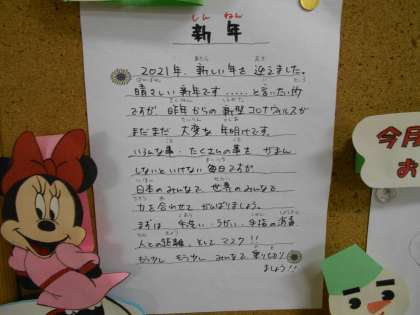 しんねん
新年
2021年、新しい年を迎えました。
晴々しい新年です．．．．．と言いたい所
ですが 昨年からの新型コロナウィルスが
まだまだ 大変な 年明けです。
いろんな事 たくさんの事を がまん
しないといけない 毎日ですが
日本のみんなで 世界のみんなで
力を合わせて がんばりましょう。
まずは 手洗い うがい 手指の消毒
人との距離、そして マスク!!
もう少し もう少し みんなで 乗り切り
ましょう!!
今月
お